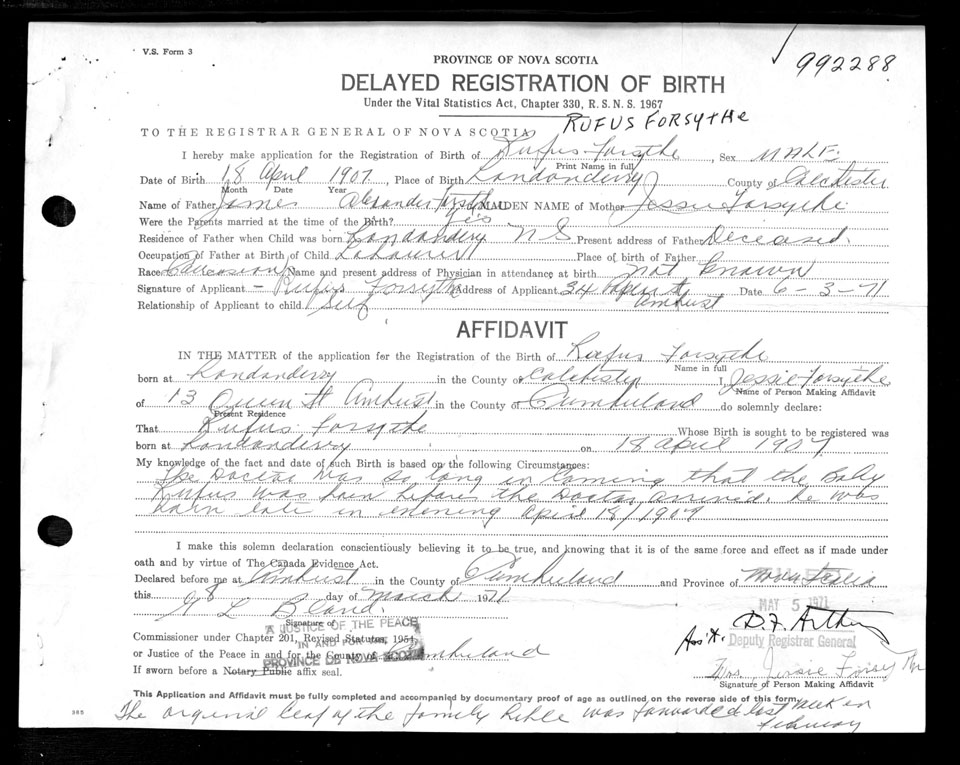 V.S. Form 3
992288
PROVINCE OF NOVA SCOTIA
DELAYED REGISTRATION OF BIRTH
Under the Vital Statistics Act, Chapter 330, R. S. N. S. 1967
RUFUS FORSYTHE
TO THE REGISTRAR GENERAL OF NOVA SCOTIA
I hereby make application for the Registration of Birth of Rufus Forsythe, Sex MALE
Print Name in full
Date of Birth 18 April 1907, Place of Birth Londonderry County of Colchester
Month Date Year
Name of Father James Alexander Forsythe MAIDEN NAME of Mother Jessie Forsythe
Were the Parents married at the time of the Birth? Yes
Residence of Father when Child was born Londonderry N S Present address of Father Deceased
Occupation of Father at Birth of Child Place of birth of Father
Race Name and present address of Physician in attendance at birth not known
Signature of Applicant - Rufus Forsythe Address of Applicant 34 Amherst Date 6-3-71
Relationship of Applicant to child Self
AFFIDAVIT
IN THE MATTER of the application for the Registration of the Birth of Rufus Forsythe
Name in full
born at Londonderry in the County of Colchester I, Jessie Forsythe
Name of Person Making Affidavit
of 13 Queen St Amherst in the County of Cumberland do solemnly declare:
Present Residence
That Rufus Forsythe Whose Birth is sought to be registered was
born at Londonderry on 18 April 1907
My knowledge of the fact and date of such Birth is based on the following Circumstances:
The Doctor was so long in coming that the Baby
Rufus was born before the Doctor arrived. He was
born late in evening April 18/1907
I make this solemn declaration conscientiously believing it to be true, and knowing that it is of the same force and effect as if made under
oath and by virtue of The Canada Evidence Act.
Declared before me at Amherst in the County of Cumberland and Province of Nova Scotia
this 8 day of March 1971
MAY 5 1971
G L Bland
Signature of
A JUSTICE OF THE PEACE
Commissioner under Chapter 201, Revised Statutes, 1954
IN AND FOR THE
or Justice of the Peace in and for the County of Cumberland
PROVINCE OF NOVA SCOTIA
If sworn before a Notary Public affix seal.
Ass't. D. F.
Deputy Registrar General
Mrs. Jessie Forsythe
Signature of Person Making Affidavit
This Application and Affidavit must be fully completed and accompanied by documentary proof of age as outlined, on the reverse side of this form.
385
The original leaf of the family Bible was forwarded last week in
February